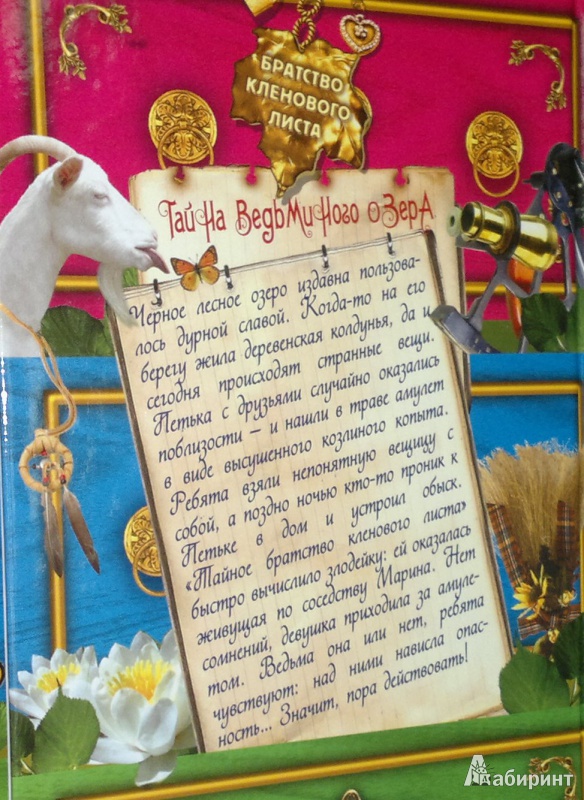 БРАТСТВО
КЛЕНОВОГО
ЛИСТА
Тайна Ведьминого озера
Черное лесное озеро издавна пользова-
лось дурной славой. Когда-то на его
берегу жила деревенская колдунья, да и
сегодня происходят странные вещи.
Петька с друзьями случайно оказались
поблизости – и нашли в траве амулет
в виде высушенного козлиного копыта.
Ребята взяли непонятную вещицу с
собой, а поздно ночью кто-то проник к
Петьке в дом и устроил обыск.
«Тайное братство кленового листа»
быстро вычислило злодейку: ей оказалась
живущая по соседству Марина. Нет
сомнений, девушка приходила за амуле-
том. Ведьма она или нет, ребята
чувствуют: над ними нависла опас-
ность... Значит, пора действовать!
Лабиринт